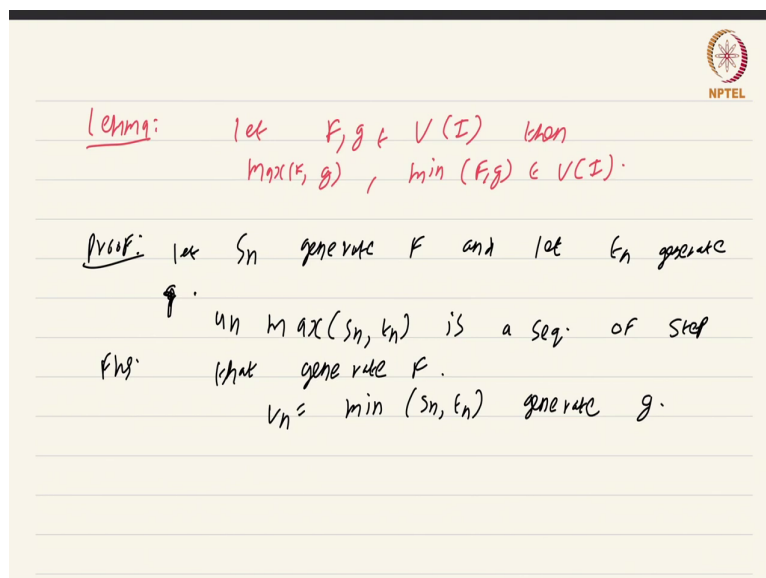 NPTEL
Lemma: let F, g ∈ V(I) then
max(F, g), min (F,g) ∈ V(I).
Proof: let Sn generate F and let tn generate
g.
un max(Sn, tn) is a seq. of step
Fns. that generate F.
Vn = min (Sn, tn) generate g.